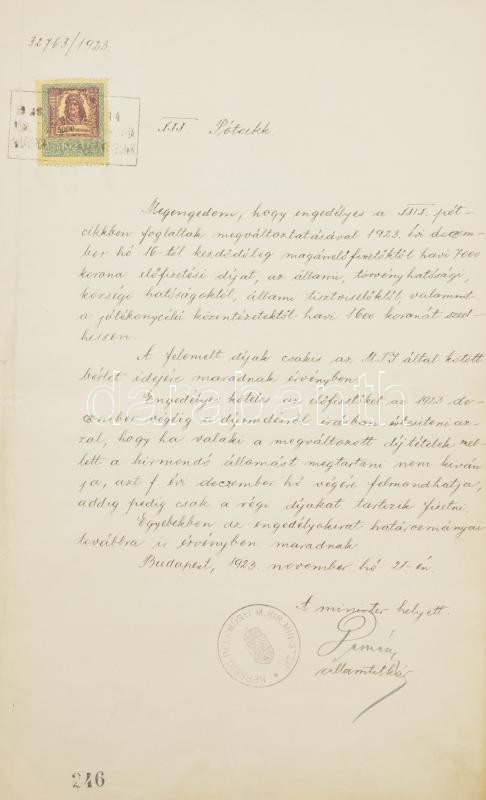 32763/1923.
5000
XXX. Pótcikk.
Megengedem, hogy engedélyes a XXIX. pót-
cikkben foglaltak megváltoztatásával 1923. évi deczem-
ber hó 16-tól kezdődőleg magánelőfizetőktől havi 7000
korona előfizetési díjat, az állami, törvényhatósági,
községi hatóságoktól, állami tisztviselőktől, valamint
a jótékonycélú közintézetektől havi 1600 koronát szed-
hessen.
A felemelt díjak csakis az M.T.I által kötött
bérlet idejére maradnak érvényben.
Engedélyes köteles az előfizetőket az 1923 de-
czember végéig a díjemelésről írásban értesíteni az-
zal, hogy ha valaki a megváltozott díjtételek mel-
lett a hirmondó állomást megtartani nem kíván-
ja, azt f. évi deczember hó végére felmondhatja,
addig pedig csak a régi díjakat tartozik fizetni.
Egyebekben az engedélyokirat határozmányai
továbbra is érvényben maradnak.
Budapest, 1923. november hó 21-én.
A miniszter helyett.
államtitkár
KERESKEDELEMÜGYI M. KIR. MINISZTER
darabanth
246